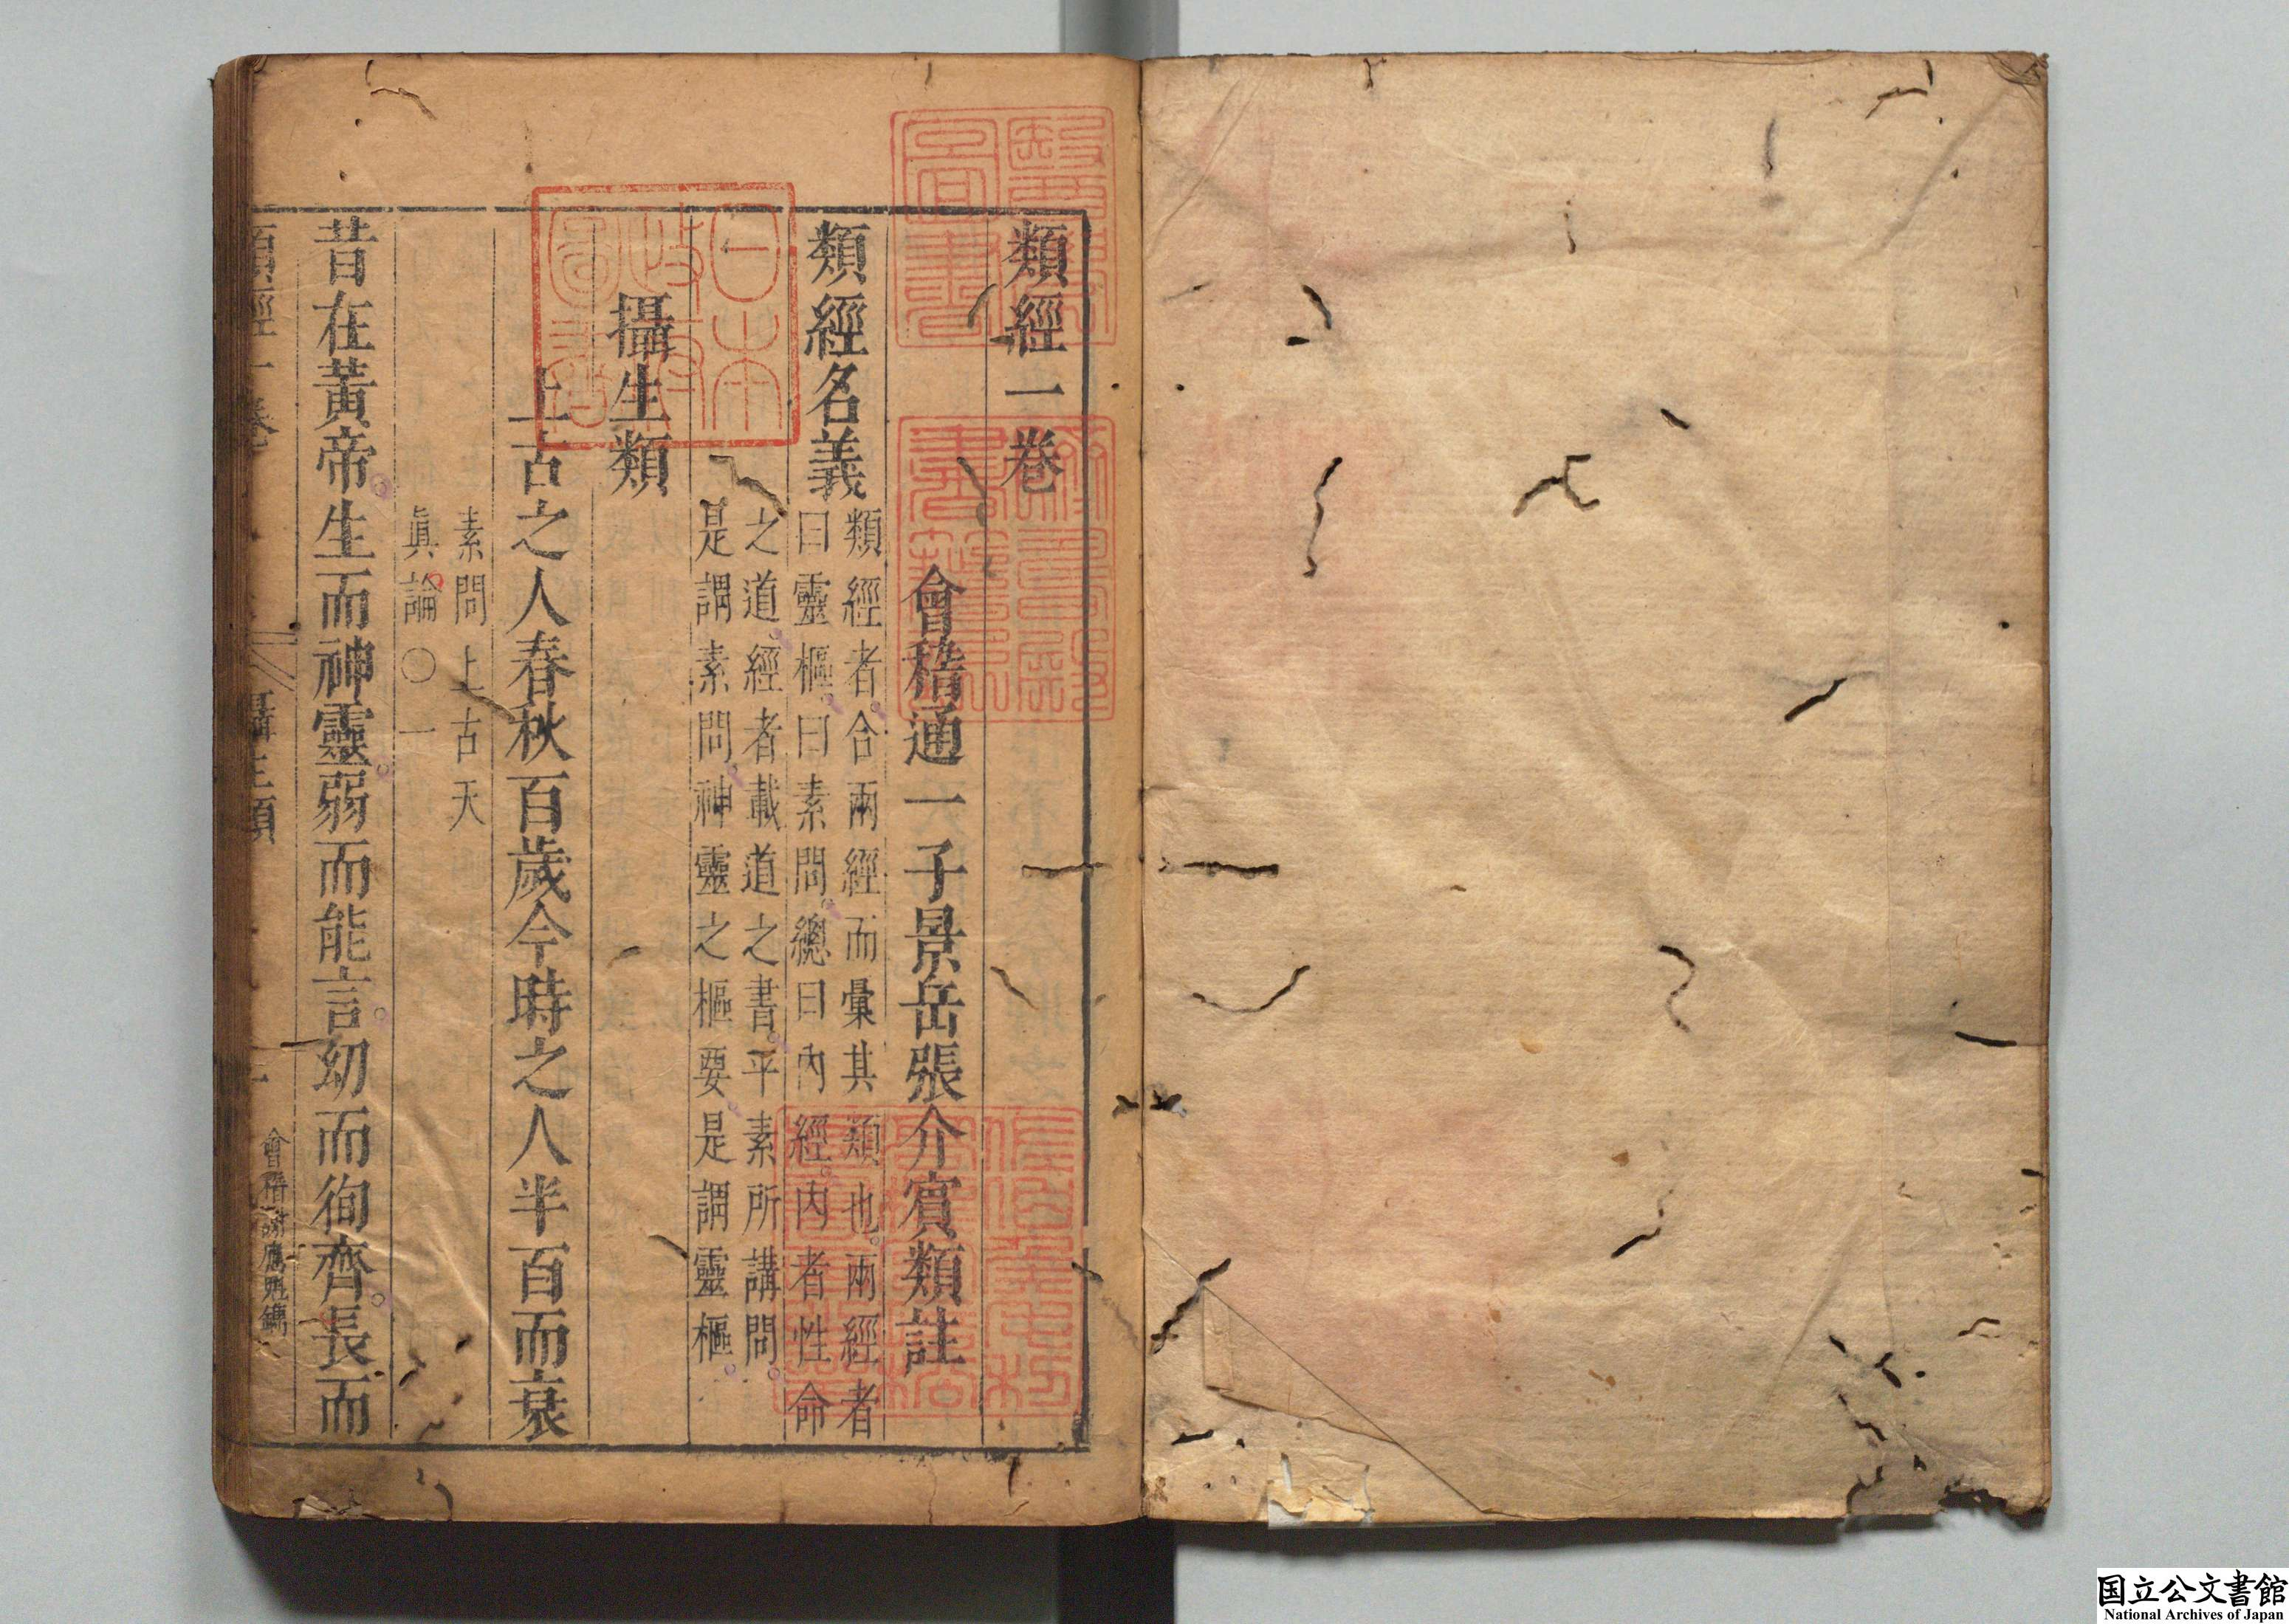 類經一卷
會稽通一子景岳張介賓類註
類經名義
類經者合兩經而彙其類也兩經者
曰靈樞曰素問總曰內經內者性命
之道經者載道之書平素所講問
是謂素問神靈之樞要是謂靈樞
攝生類
上古之人春秋百歲今時之人半百而衰
素問上古天
眞論〇一
昔在黃帝生而神靈弱而能言幼而徇齊長而
類經一卷
攝生類
一
會稽謝應魁鐫
日本
政府
圖書
国立公文書館
National Archives of Japan